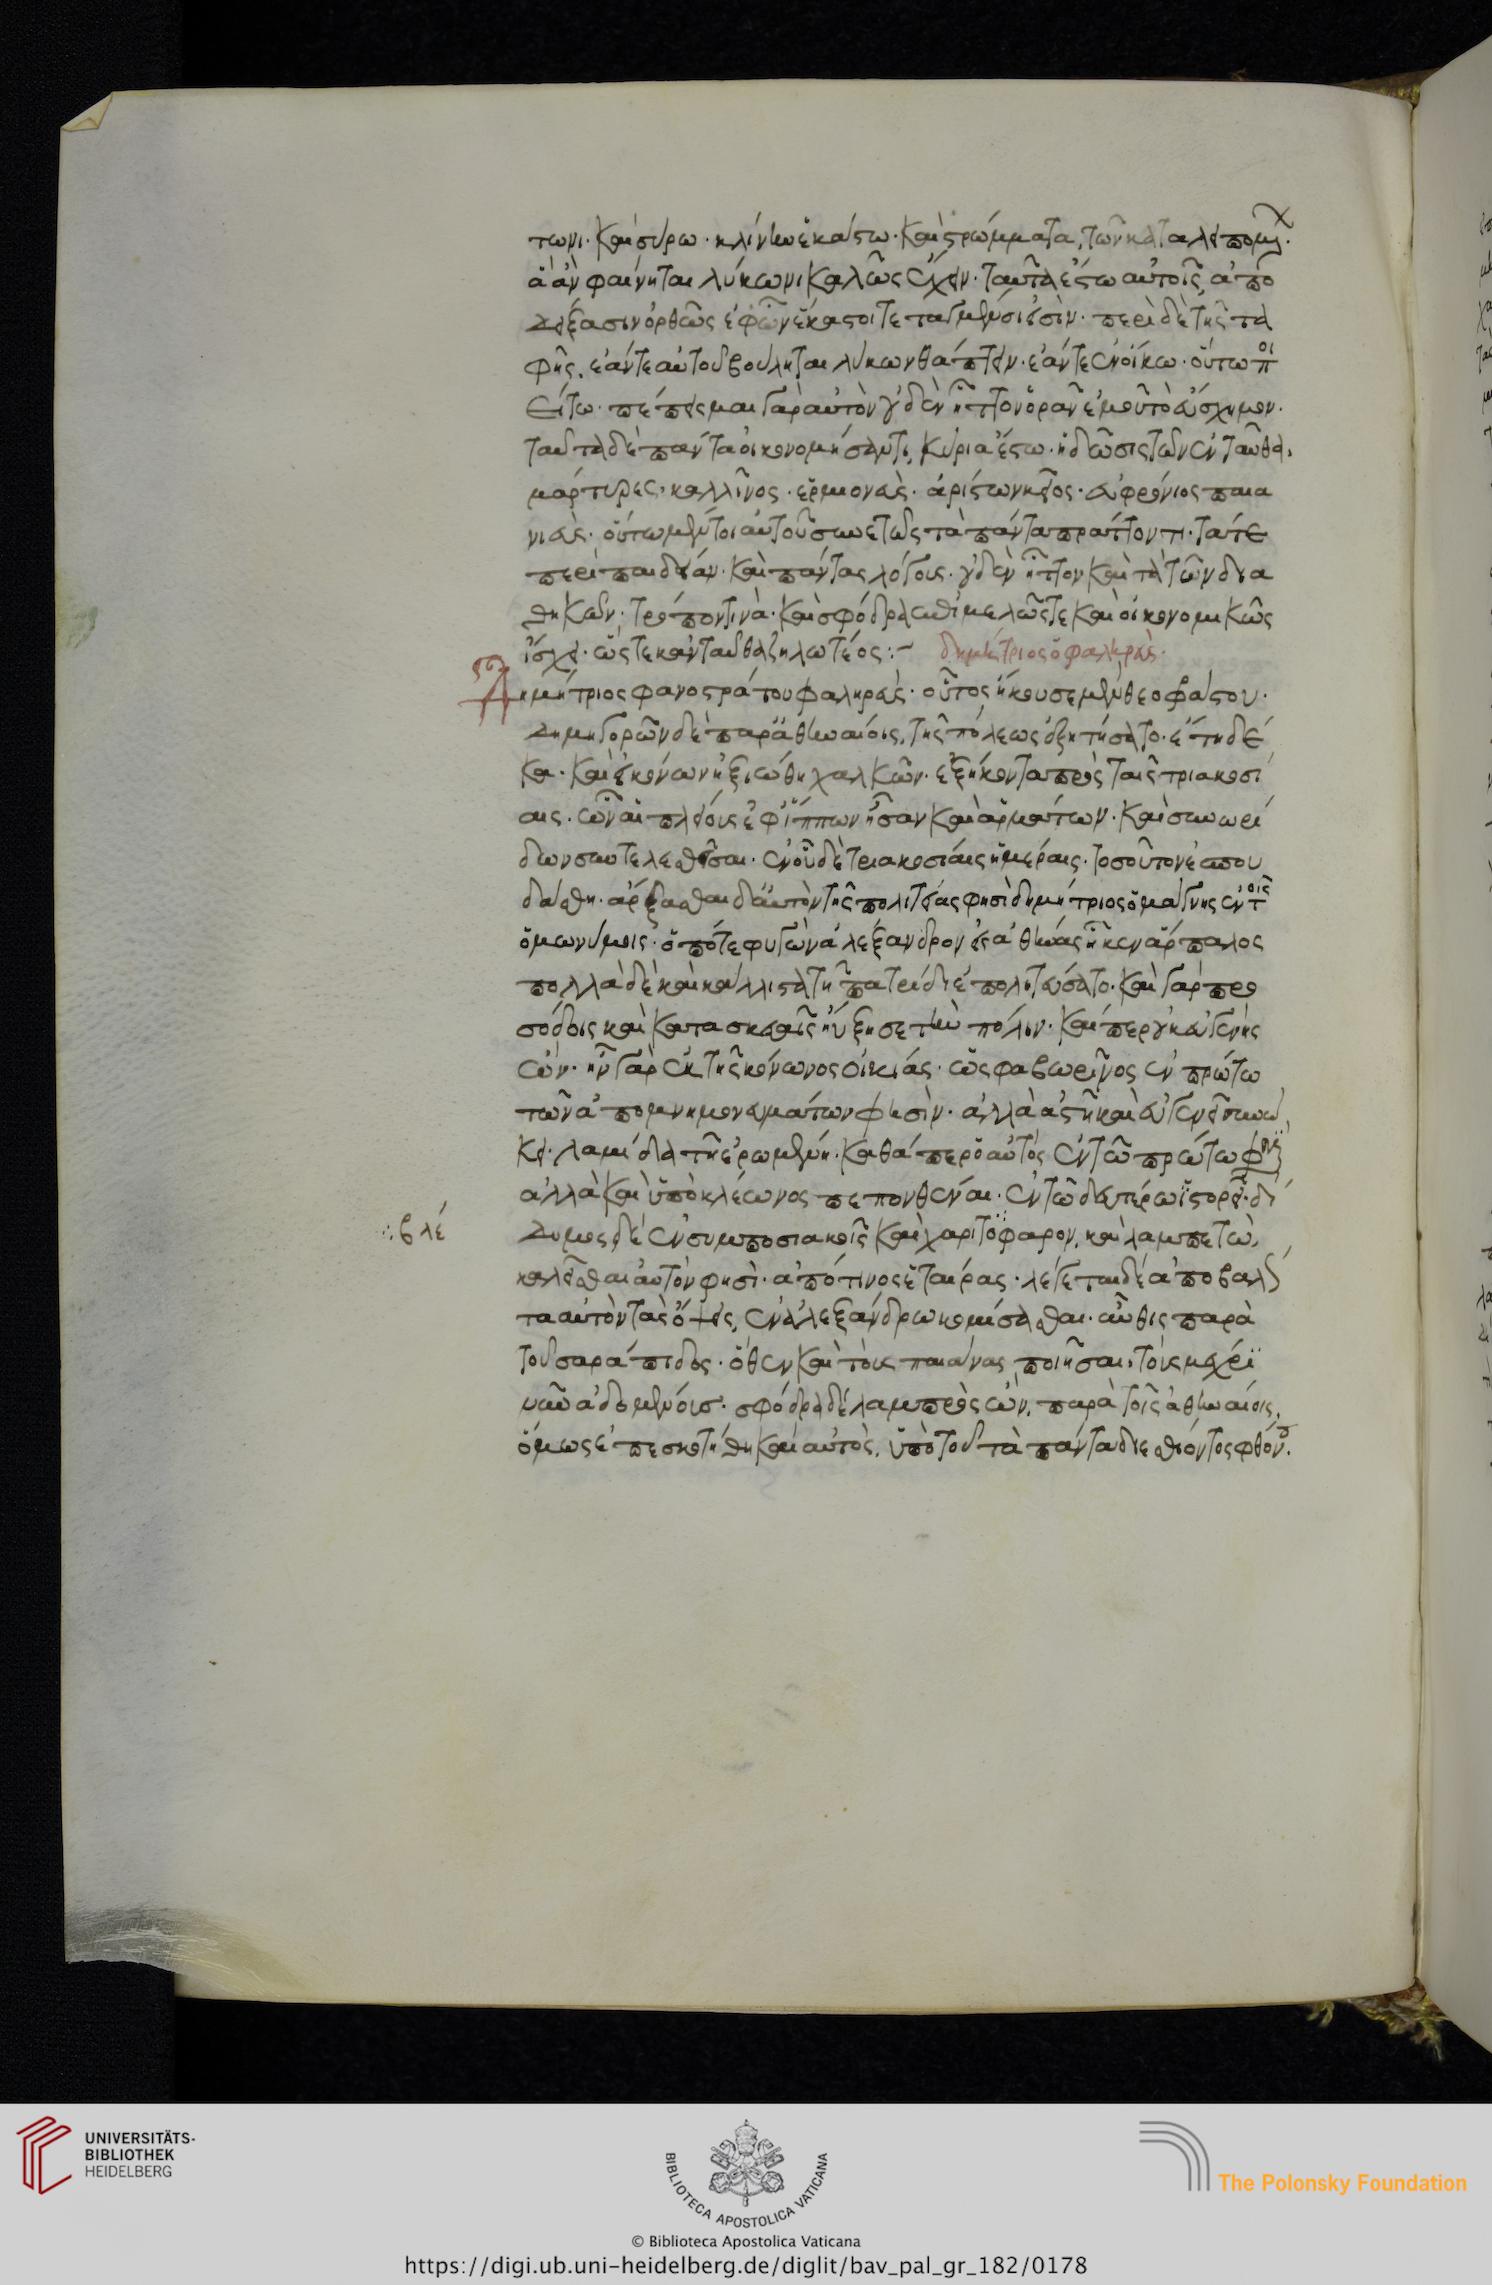 τωνι· καὶ σύρω· κλίνην ἑκάστω· καὶ στρώμματα, τῶν καταλειπομένων·
ἃ ἂν φαίνηται λύκωνι καλῶς ἔχειν· ταῦτα ἔστω αὐτοῖς, ἀπο
δείξασιν ὀρθῶς ἐφ' ὧν ἕκαστοι τεταγμένοι εἰσὶν· περὶ δὲ τῆς τα
φῆς, ἐάν τε αὐτοῦ βούληται λύκων θάπτειν· ἐάν τε ἐν οἴκω· οὕτω ποι
είτω· πέπεισμαι γὰρ αὐτὸν οὐδὲν ἧττον ὁρᾶν ἐμοῦ τὸ εὔσχημον·
ταῦτα δὲ πάντα οἰκονομήσαντι, κυρία ἔστω· ἡ δῶσις τῶν ἐνταῦθα·
μάρτυρες· καλλῖνος· ἑρμιονεὺς· ἀρίστων κεῖος· εὐφρόνιος παια
νιεὺς· οὕτω μέν τοι αὐτοῦ συνετῶς τὰ πάντα πράττοντι· τά τε
περὶ παιδείαν· καὶ πάντας λόγους· οὐδὲν ἧττον καὶ τὰ τῶν δια
θηκῶν· τρόπον τινὰ· καὶ σφόδρα ἐπιμελῶς τε καὶ οἰκονομικῶς
ἴσχει· ὥστε κἀνταῦθα ζηλωτέος :– δημήτριος ὁ φαληρεὺς·
Δημήτριος φανοστράτου φαληρεὺς· οὗτος ἤκουσε μὲν θεοφράστου·
δημηγορῶν δὲ παρ' ἀθηναίοις, τῆς πόλεως ἐξητήσατο· ἔτη δέ
κα· καὶ εἰκόνων ἠξιώθη χαλκῶν· ἑξήκοντα πρὸς ταῖς τριακοσί
αις· ὧν αἱ πλείους ἐφ' ἵππων ἦσαν καὶ ἁρμάτων· καὶ συνωρί
δων συντελεσθεῖσαι· ἐν οὐδὲ τριακοσίαις ἡμέραις· τοσοῦτον ἐσπου
δάσθη· ἄρξασθαι δ' αὐτὸν τῆς πολιτείας φησὶ δημήτριος ὁ μάγνης ἐν τοῖς
ὁμωνύμοις· ὁπότε φυγὼν ἀλέξανδρον εἰς ἀθήνας ἧκεν ἅρπαλος
πολλὰ δὲ καὶ κάλλιστα τῆ πατρίδι ἐπολιτεύσατο· καὶ γὰρ προ
σόδοις καὶ κατασκευαῖς ηὔξησε τὴν πόλιν· καίπερ οὐκ εὐγενὴς
ὤν· ἦν γὰρ ἐκ τῆς κόνωνος οἰκίας· ὡς φαβωρῖνος ἐν πρώτω
τῶν ἀπομνημονευμάτων φησὶν· ἀλλὰ ἀστῆ καὶ εὐγενεῖ συνώ
κει· λαμία τῆ ἐρωμένη· καθάπερ ὁ αὐτὸς ἐν τῶ πρώτω φησὶ
ἀλλὰ καὶ ὑπὸ κλέωνος πεπονθέναι· ἐν τῶ δευτέρω ἱστορεῖ· δί
∴ βλέ
δυμος δὲ ἐν συμποσιακοῖς καὶ χαριτόφαρον, καὶ λαμπετὼ,
καλεῖσθαι αὐτόν φησὶ· ἀπό τινος ἑταίρας· λέγεται δὲ ἀποβαλόν
τα αὐτὸν τὰς ὄψεις, ἐν ἀλεξάνδρω κομίσασθαι· αὖθις παρὰ
τοῦ σαράπιδος· ὅθεν καὶ τοὺς παιάνας ποιῆσαι, τοὺς μέχρι
νῦν ἀδομένοις· σφόδρα δὲ λαμπρὸς ὢν, παρὰ τοῖς ἀθηναίοις,
ὅμως ἐπεσκοτήθη καὶ αὐτὸς, ὑπὸ τοῦ τὰ πάντα διεσθίοντος φθόνου.
UNIVERSITÄTS-
BIBLIOTHEK
HEIDELBERG
BIBLIOTECA APOSTOLICA VATICANA
The Polonsky Foundation
© Biblioteca Apostolica Vaticana
https://digi.ub.uni-heidelberg.de/diglit/bav_pal_gr_182/0178